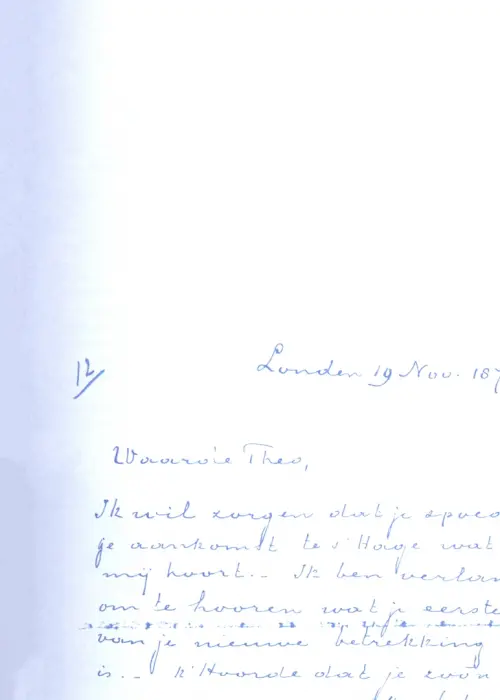 12/
Londen 19 Nov. 187
Waarde Theo,
Ik wil zorgen dat je spoe
je aankomst te s'Hage wat
mij hoort._ Ik ben verlan
om te hooren wat je eerste
van je nieuwe betrekking
is._ k'Hoorde dat je zoo'n